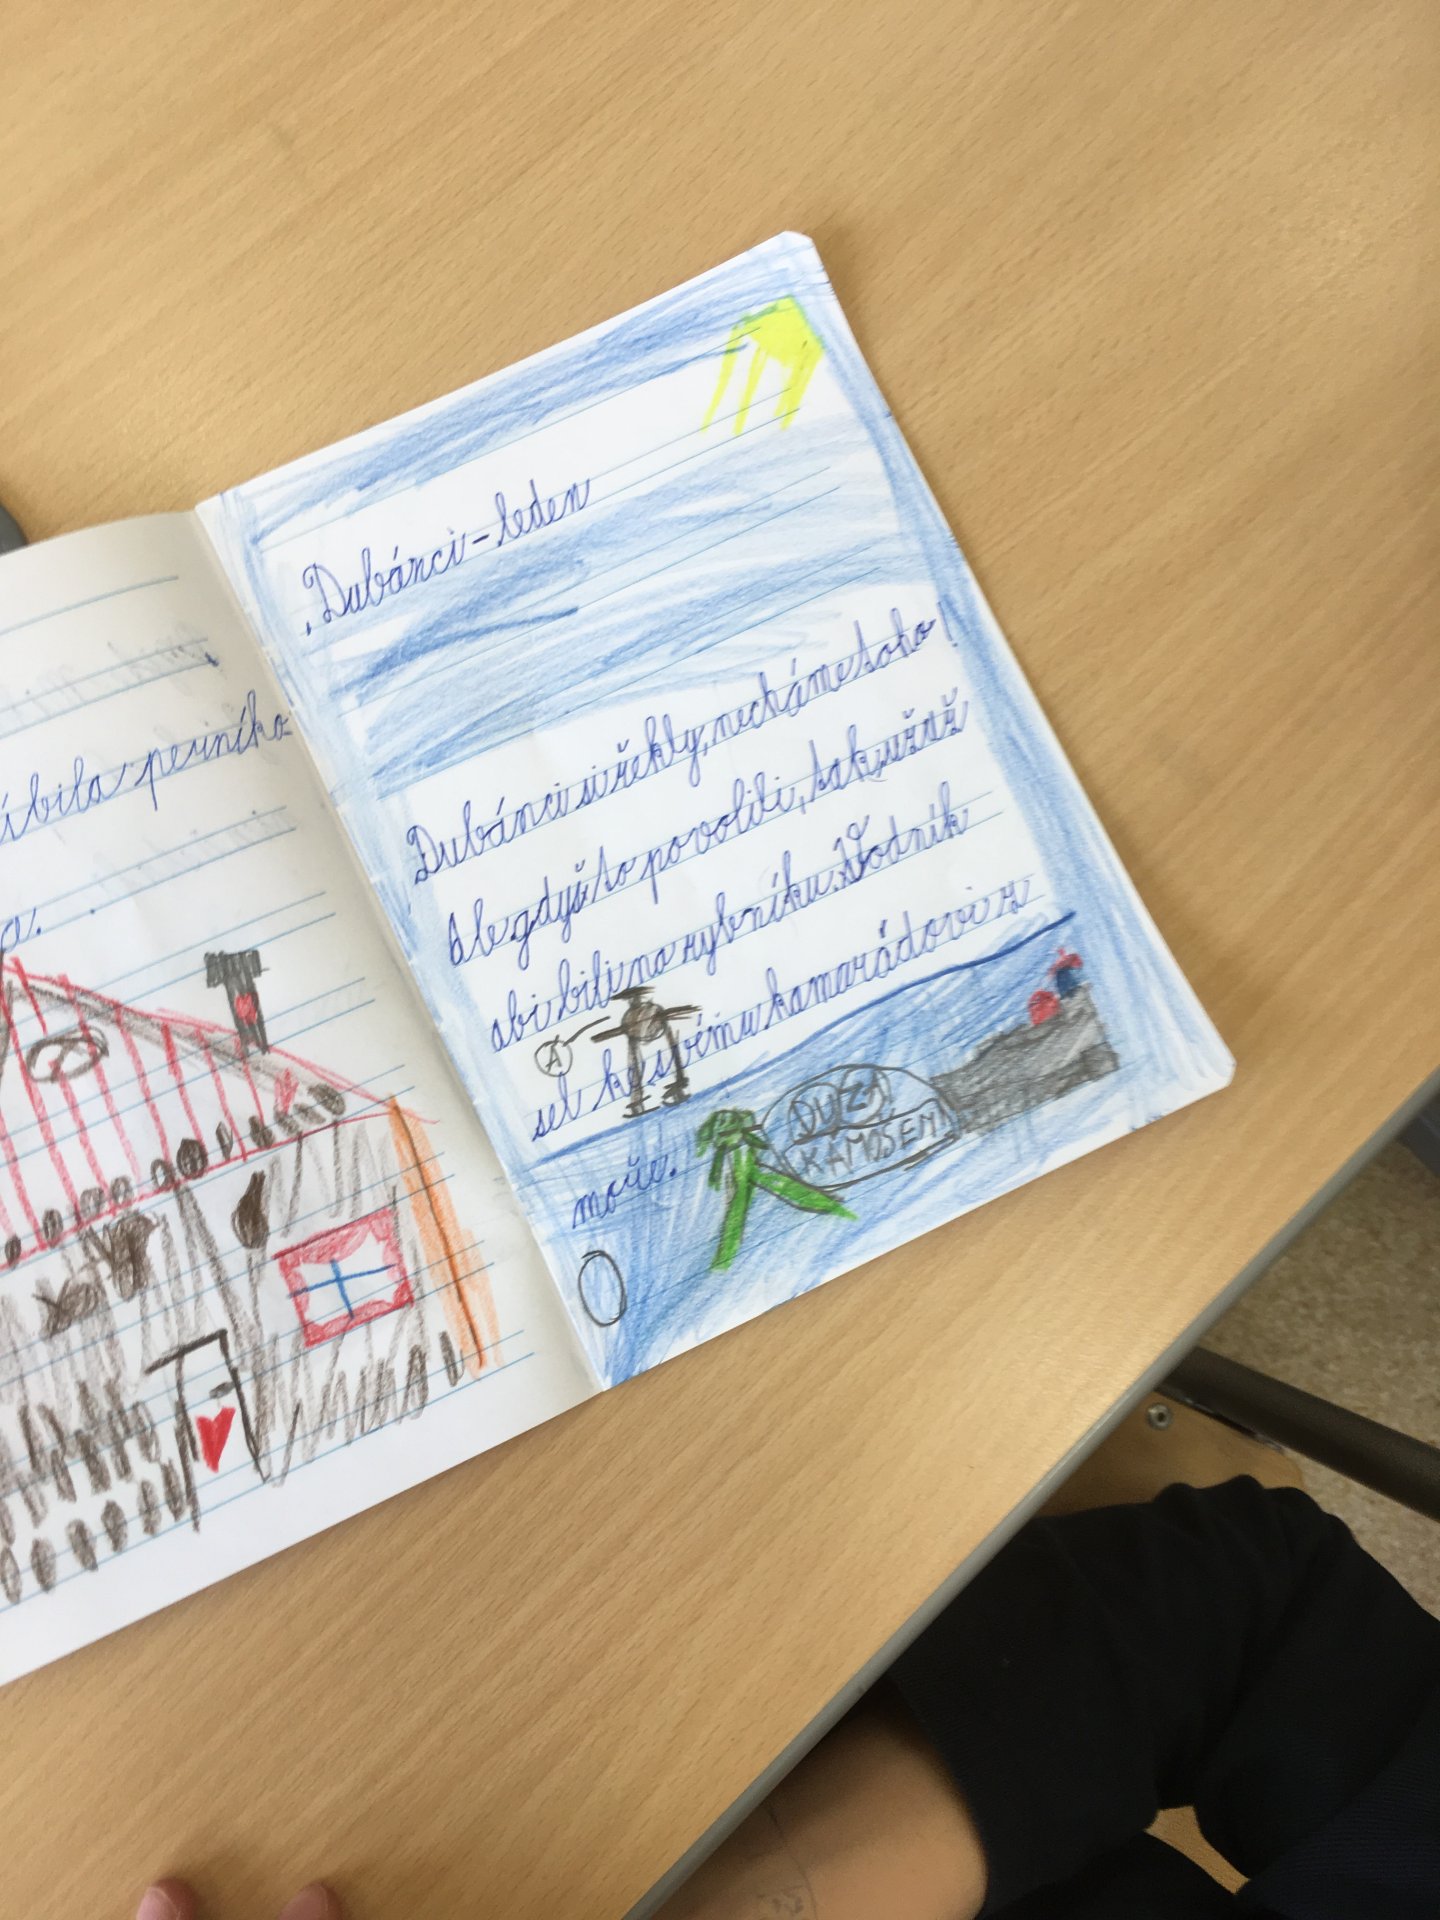 íbila periníka
a.
Dubánci-leden
Dubánci si řekly, necháme toho!
Ale gdyš to povolili, tak už až
abi bili na rybníku. Vodník
sel ke svému kamarádovi z
moře.
A
DU ZA
KAMOŠEM!